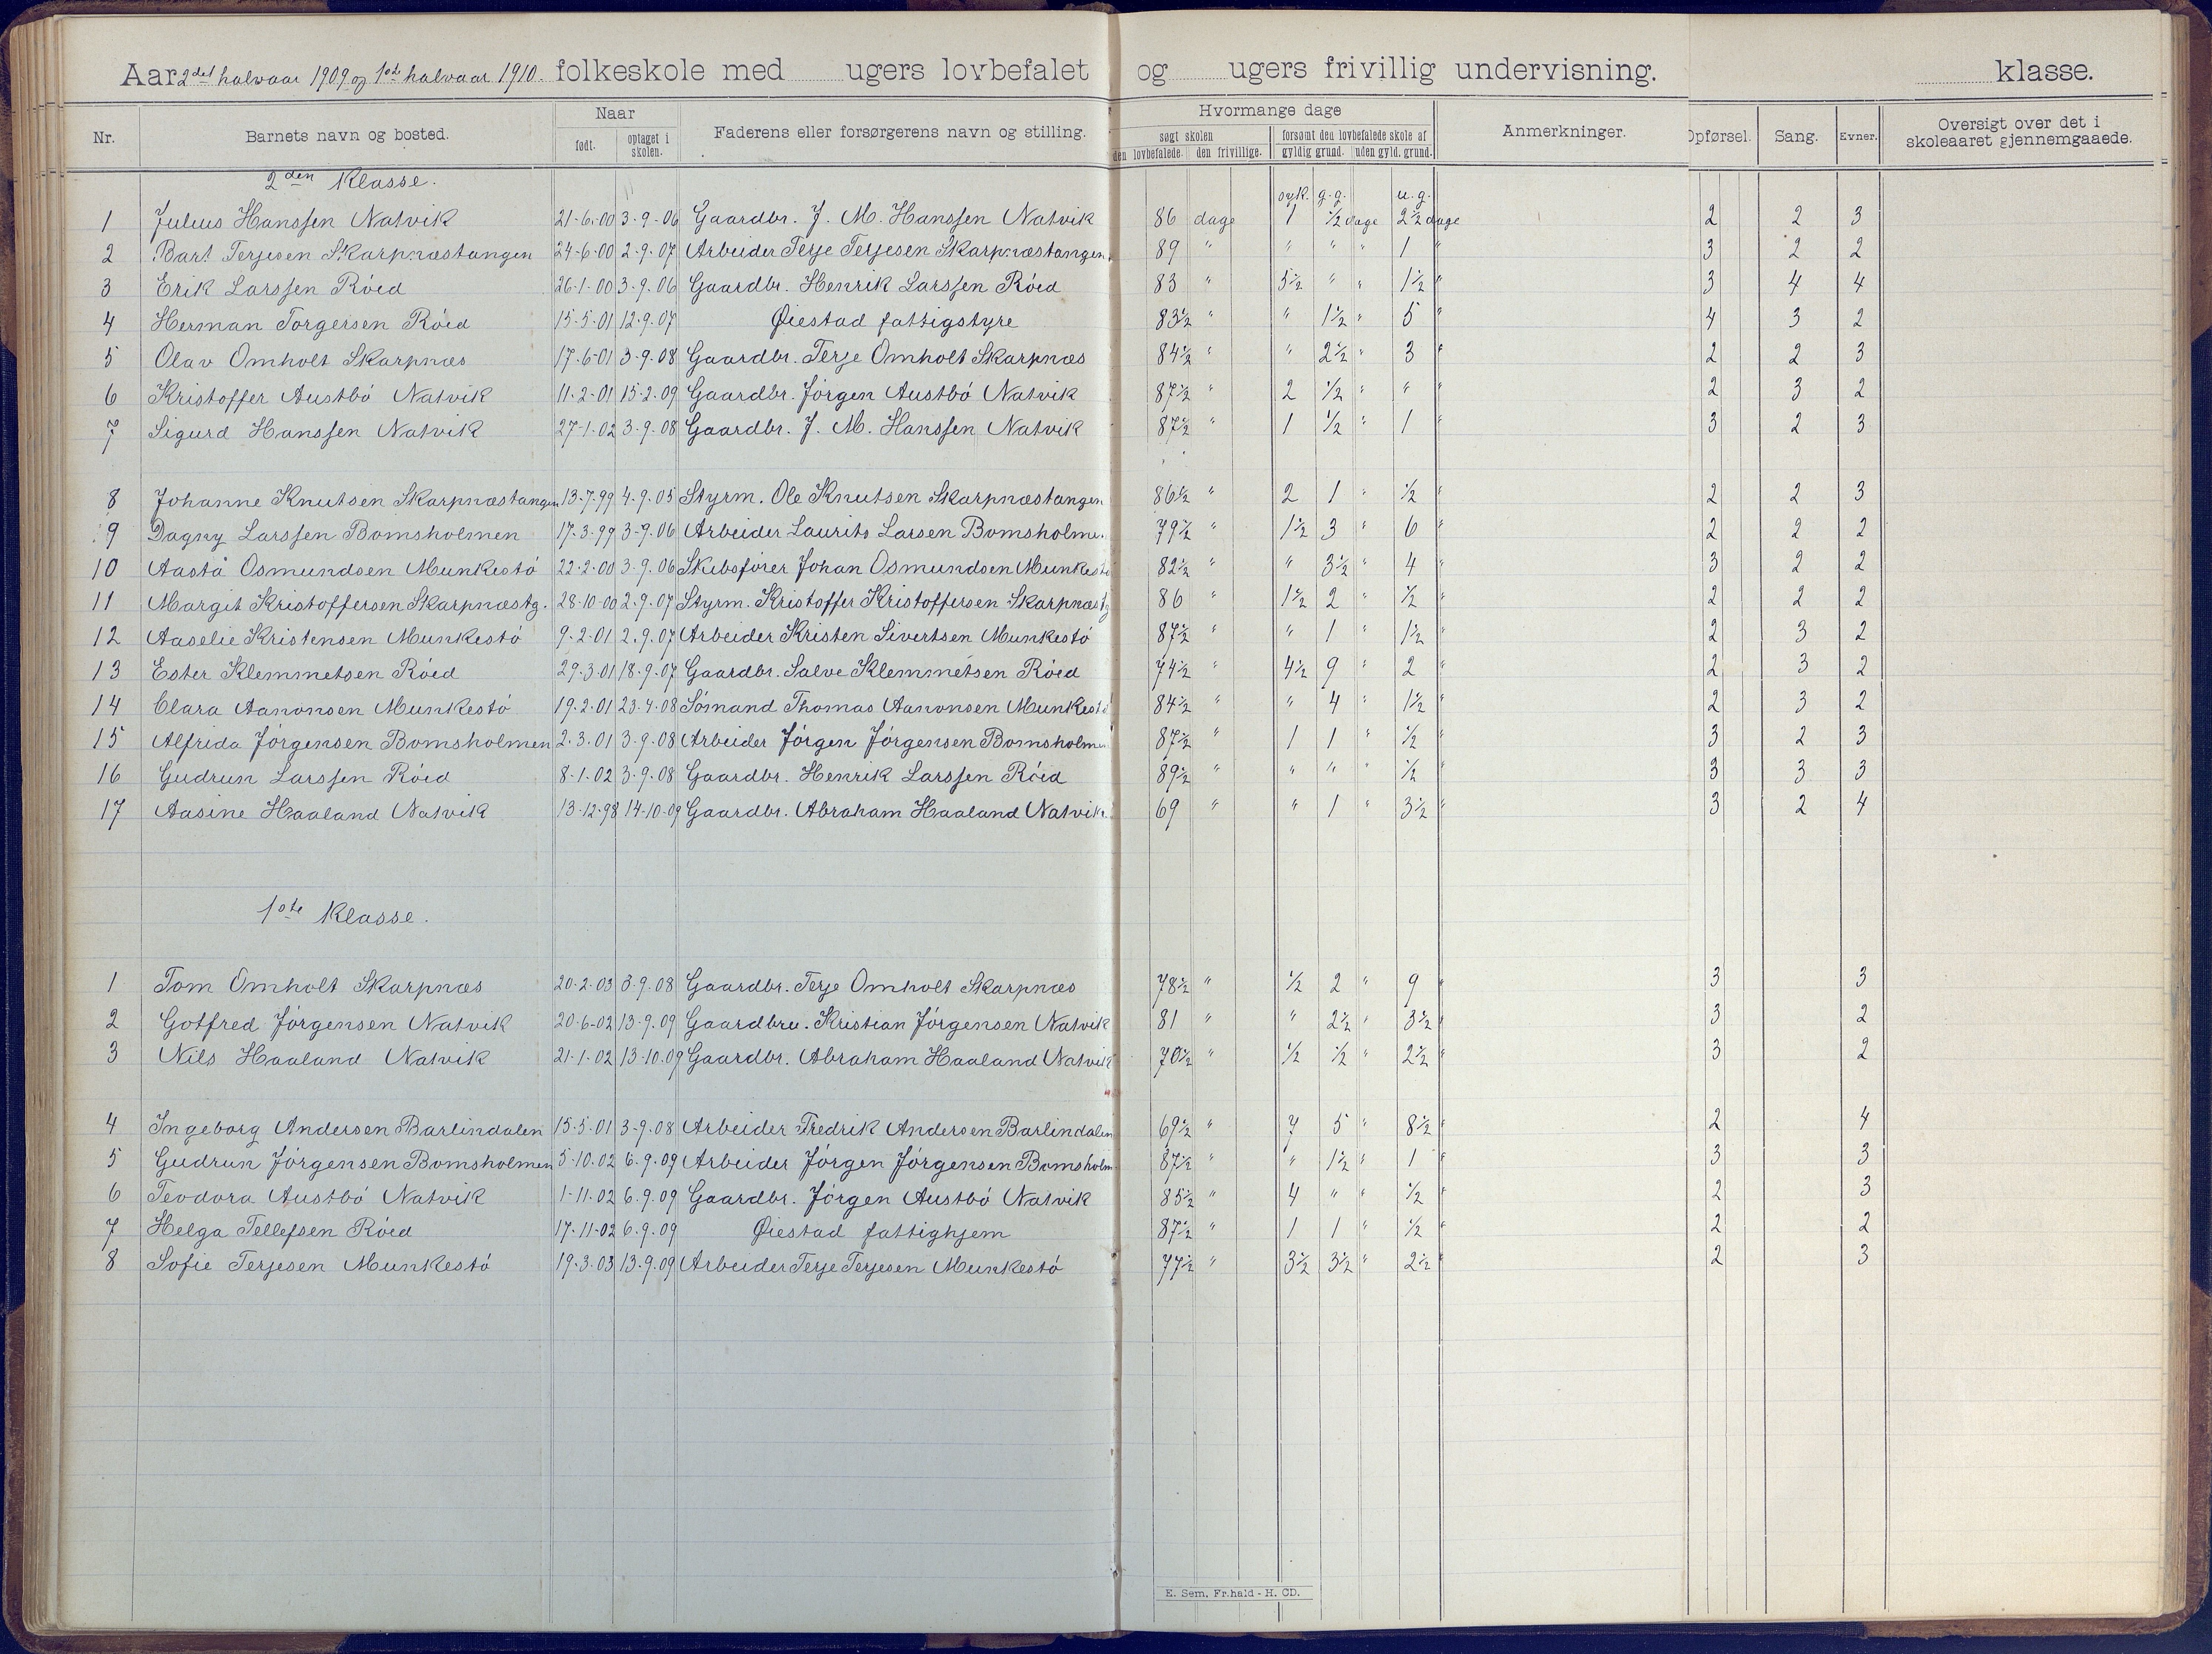 Aar 2det halvaar 1909 og 1ste halvaar 1910. folkeskole med ugers lovbefalet og ugers frivillig undervisning. klasse.
Nr. Barnets navn og bosted. Naar født. optaget i skolen. Faderens eller forsørgerens navn og stilling. Hvormange dage søgt skolen den lovbefalede. den frivillige. forsømt den lovbefalede skole af gyldig grund. uden gyld. grund. Anmerkninger. Opførsel. Sang. Evner. Oversigt over det i skoleaaret gjennemgaaede.
2den Klasse.
syk. g.g. u.g.
1 Julius Hanssen Natvik 21-6-00 3-9-06 Gaardbr. J. M. Hanssen Natvik 86 dage 1 1/2 dage 2 1/2 dage 2 2 3
2 Bart Terjesen Skarpnæstangen 24-6-00 2-9-07 Arbeider Terje Terjesen Skarpnæstangen 89 " " " " 1 " 3 2 2
3 Erik Larssen Röed 26-1-00 3-9-06 Gaardbr. Henrik Larssen Röed 83 " 5 1/2 " " 1 1/2 " 3 4 4
4 Herman Torgersen Röed 15-5-01 12-9-07 Øiestad fattigstyre 83 1/2 " " 1 1/2 " 5 " 4 3 2
5 Olav Omholt Skarpnæs 17-6-01 3-9-08 Gaardbr. Terje Omholt Skarpnæs 84 1/2 " " 2 1/2 " 3 " 2 2 3
6 Kristoffer Austbö Natvik 11-2-01 15-2-09 Gaardbr. Jörgen Austbö Natvik 87 1/2 " 2 1/2 " " " 2 3 2
7 Sigurd Hanssen Natvik 27-1-02 3-9-08 Gaardbr. J. M. Hanssen Natvik 87 1/2 " 1 1/2 " 1 " 3 2 3
8 Johanne Knutsen Skarpnæstangen 13-7-99 4-9-05 Styrm. Ole Knutsen Skarpnæstangen 86 1/2 " 2 1 " 1/2 " 2 2 3
9 Dagny Larssen Bomsholmen 17-3-99 3-9-06 Arbeider Laurits Larsen Bomsholme. 79 1/2 " 1 1/2 3 " 6 " 2 2 2
10 Aasta Osmundsen Munkestö 22-2-00 3-9-06 Skibsförer Johan Osmundsen Munkestö 82 1/2 " " 3 1/2 " 4 " 3 2 2
11 Margit Kristoffersen Skarpnæstg. 28-10-00 2-9-07 Styrm. Kristoffer Kristoffersen Skarpnæstg 86 " 1 1/2 2 " 1/2 " 2 2 2
12 Aaselie Kristensen Munkestö 9-2-01 2-9-07 Arbeider Kristen Sivertsen Munkestö 87 1/2 " " 1 " 1 1/2 " 2 3 2
13 Ester Klemmetsen Röed 29-3-01 18-9-07 Gaardbr. Salve Klemmetsen Röed 74 1/2 " 4 1/2 9 " 2 " 2 3 2
14 Clara Aanonsen Munkestö 19-2-01 23-4-08 Sömand Thomas Aanonsen Munkestö 84 1/2 " " 4 " 1 1/2 " 2 3 2
15 Alfrida Jörgensen Bomsholmen 2-3-01 3-9-08 Arbeider Jörgen Jörgensen Bomsholmen 87 1/2 " 1 1 " 1/2 " 3 2 3
16 Gudrun Larssen Röed 8-1-02 3-9-08 Gaardbr. Henrik Larssen Röed 89 1/2 " " " " 1/2 " 3 3 3
17 Aasine Haaland Natvik 13-12-98 14-10-09 Gaardbr. Abraham Haaland Natvik 69 " " 1 " 3 1/2 " 3 2 4
1ste Klasse.
1 Tom Omholt Skarpnæs 20-2-03 3-9-08 Gaardbr. Terje Omholt Skarpnæs 78 1/2 " 1/2 2 " 9 " 3 3
2 Gotfred Jörgensen Natvik 20-6-02 13-9-09 Gaardbru. Kristian Jörgensen Natvik 81 " " 2 1/2 " 3 1/2 " 3 2
3 Nils Haaland Natvik 21-1-02 13-10-09 Gaardbr. Abraham Haaland Natvik 70 1/2 " 1/2 1/2 " 2 1/2 " 3 2
4 Ingeborg Andersen Barlindalen 15-5-01 3-9-08 Arbeider Fredrik Andersen Barlindalen 69 1/2 " 7 5 " 8 1/2 " 2 4
5 Gudrun Jörgensen Bomsholmen 5-10-02 6-9-09 Arbeider Jörgen Jörgensen Bomsholm 87 1/2 " " 1 1/2 " 1 " 3 3
6 Teodora Austbö Natvik 1-11-02 6-9-09 Gaardbr. Jörgen Austbö Natvik 85 1/2 " 4 " " 1/2 " 2 3
7 Helga Tellefsen Röed 17-11-02 6-9-09 Øiestad fattighjem 87 1/2 " 1 1 " 1/2 " 2 2
8 Sofie Terjesen Munkestö 19-3-03 13-9-09 Arbeider Terje Terjesen Munkestö 77 1/2 " 3 1/2 3 1/2 " 2 1/2 " 2 3
E. Sem, Fr.hald - H. CD.